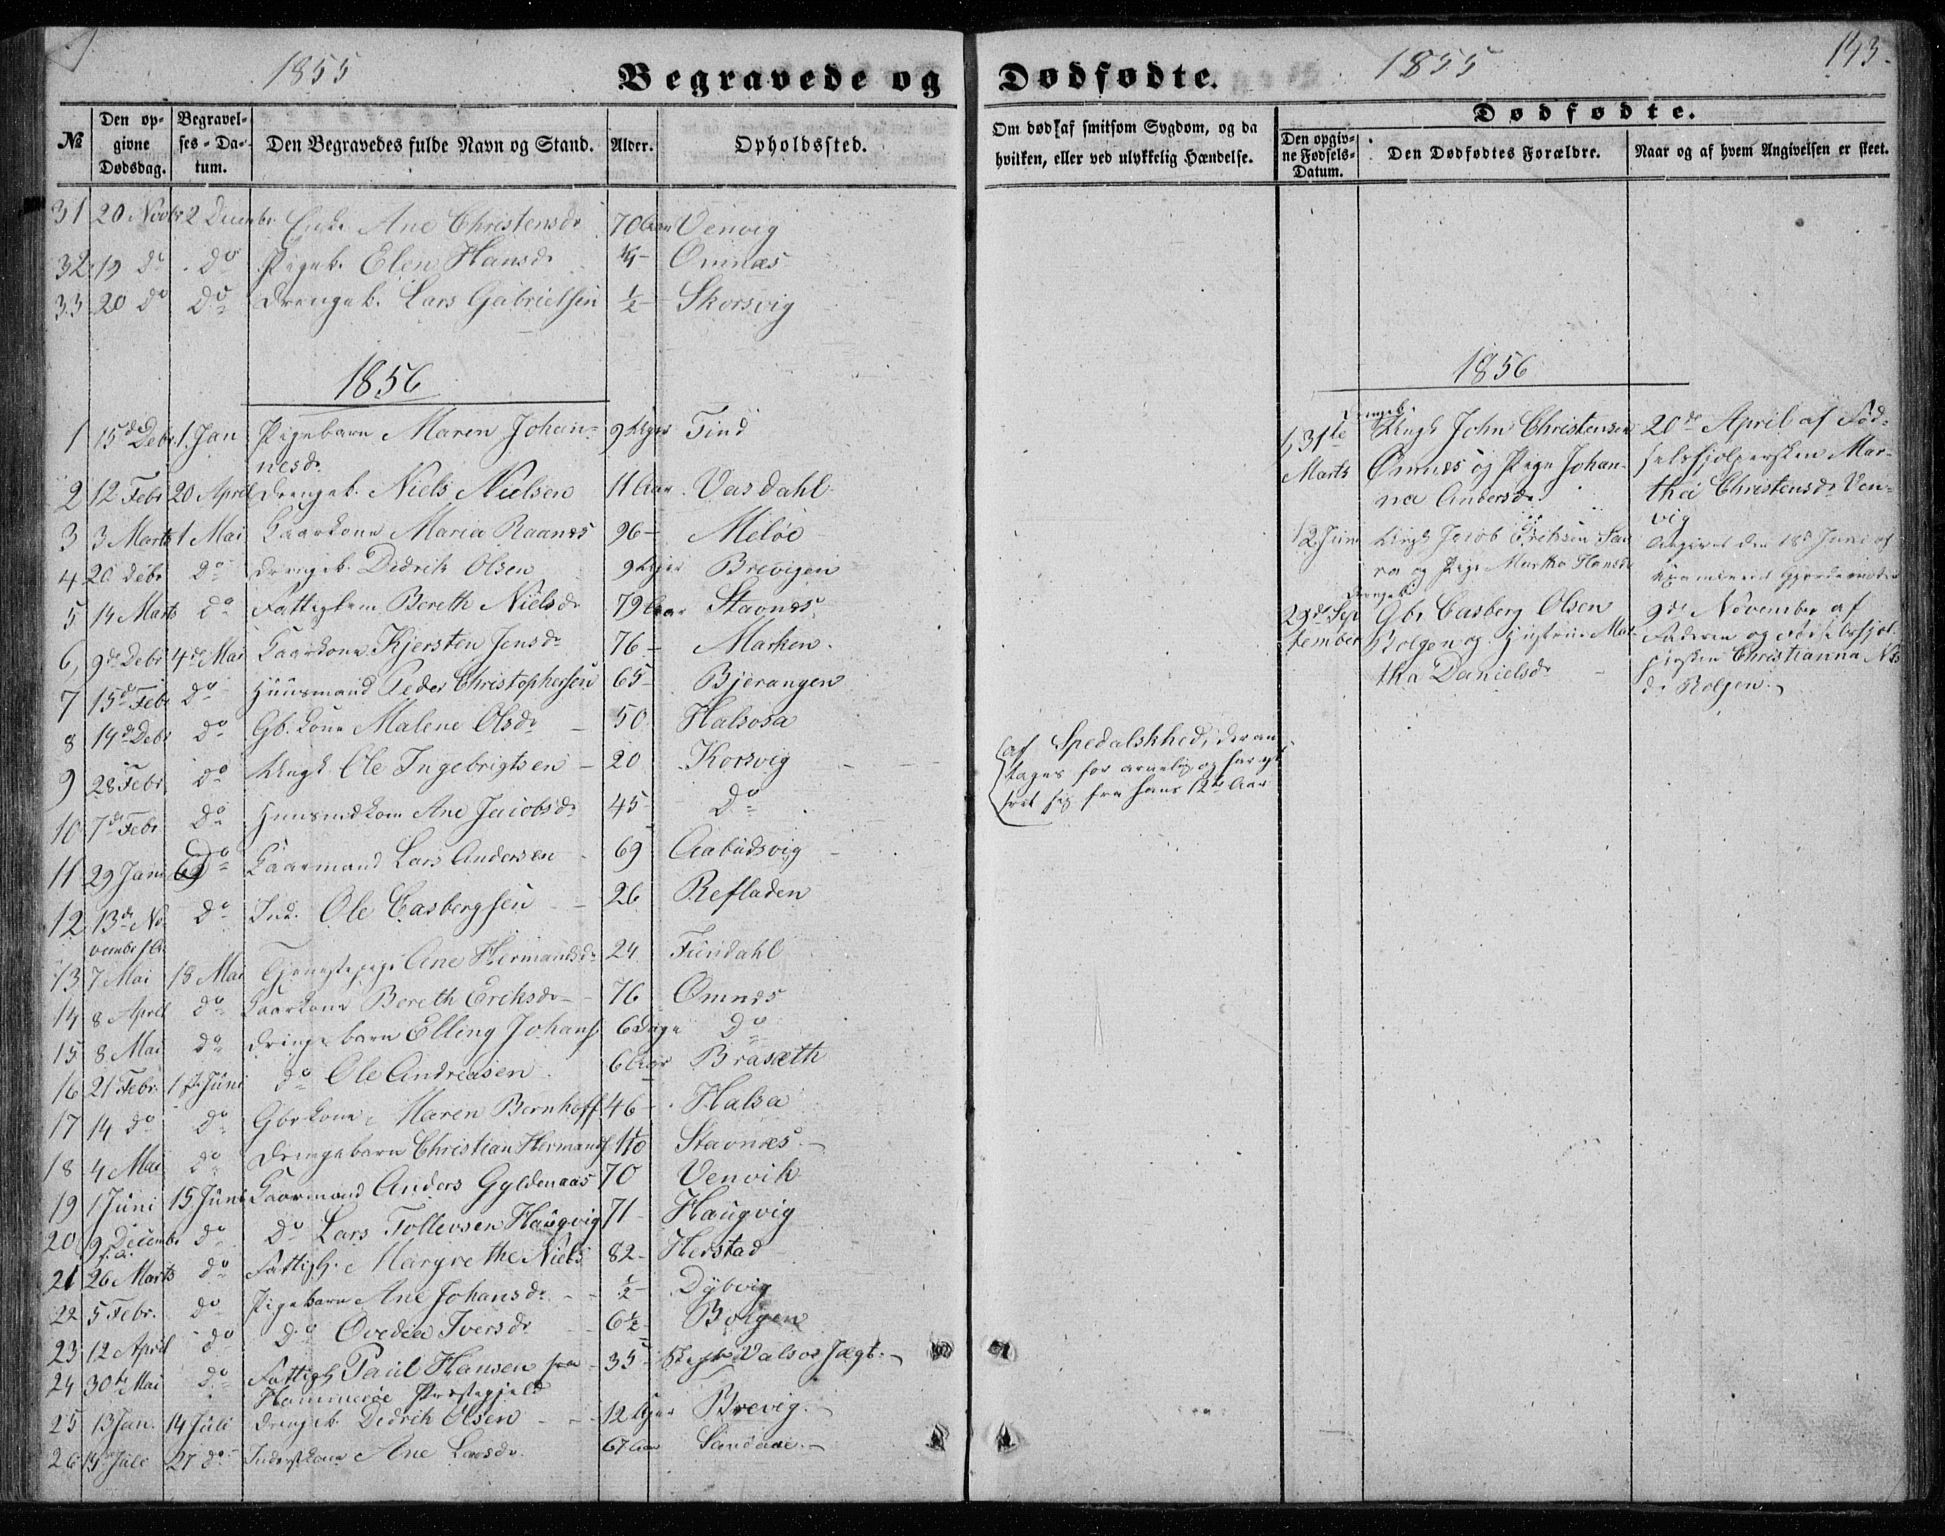 1855 Begravede og Dødfødte. 1855 143.
№ Den opgivne Dødsdag. Begravelses-Datum. Den Begravedes fulde Navn og Stand. Alder. Opholdssted.
Om død af smitsom Sygdom, og da hvilken, eller ved ulykkelig Hændelse.
Dødfødte.
Den opgivne Fødsels-Datum. Den Dødfødtes Forældre. Naar og af hvem Angivelsen er skeet.
31 20 Novbr 2 Decembr Enke Ane Christensdr 70 Aar Venvig
32 19 do do Pigeb. Elen Hansdr Omnæs
33 20 do do Drengeb. Lars Gabrielsen ½ Skorsvig
1856
1 15de Debr 1 Jan Pigebarn Maren Johan-
nesdr 9 Uger Tind
2 12 Febr 20 April Drengeb. Niels Nielsen 11 Aar Vasdahl
3 3 Marts 1 Mai Kaarkone Maria Raanes 96 Meløe
4 20 Debr do Drengeb. Dedrik Olsen 9 Uger Brevigen
5 14 Marts do Fattiglem Bereth Nielsdr 79 Aar Stavnes
6, 9de Debr 4de Mai Kaarkone Kjersten Jensdr 76 Marken
7 15de Febr do Huusmand Peder Christophersen 65 Bjerangen
8 14de Debr do Gb. kone Malene Olsdr 50 Halsosa
9 28 Febr. do Ungk. Ole Ingebrigtsen 20 Korsvig
10 7de Febr do Huusmdkone Ane Jacobsdr 45 do
11 29 Jani do Kaarmand Lars Andersen 69 Aabudsvig
12 13de No-
vember f.A. do Ind. Ole Casbergsen 26 Refladen
13 7 Mai 18 Mai Tjenestepige Ane Hermandsdr 24 Fundahl
14 8 April do Kaarkone Bereth Eriksdr 76 Omnes
15 8 Mai do Drengebarn Elling Johans. 6 Dage do
16 21 Febr. 1 Juni do Ole Andreasen 6 Aar Brasæth
17 14 do do Gbrkone Maren Bernhoft 46 Halsa
18 4 Mai do Drengebarn Christian Hermands. Stavnæs
19 1 Juni 15 Juni Kaarmand Anders Gyldenaas 70 Venvik
20 9 Decembr f.A. do do Lars Tollevsen Haugvig 71 Haugvig
21 26 Marts do Fattigl. Margrethe Niels. 82 Herstad
22 5 Febr. do Pigebarn Ane Johansdr ½ Dybvig
23 12 April do do Ovedia Iversdr 6½ Bolgen
24 30te Mai do Fattigl. Paul Hansen fra 35 Valsos Jægt.
Hammerøe Præstegjeld
25 13 Jan. 14 Juli Drengeb. Dedrik Olsen 12 Uger Brevig.
26 14 Jule 27 do Inderstkone Ane Larsdr 67 Aar
af Spedalskhed, der an-
tages for arvelig og har yt-
tret sig fra hans 12te Aar
1856
Drengeb.
1, 31te Marts Ungk. John Christensen
Omnes og Pige Johan-
na Andersdr
20de April af Fød-
selshjelpersken Mar-
thei Christensdr Ven-
vig
12 Juni Ungk. Jacob
og Pige Martha Hansdr
Angivet den 18de Juni af
Drengeb.
29de Sep-
tember Gbr. Casberg Olsen
Bolgen og Hustrue Mar-
tha Danielsdr
9de November af
Faderen og Fødselshjel-
persken Christianna Nils-
dr Bolgen.